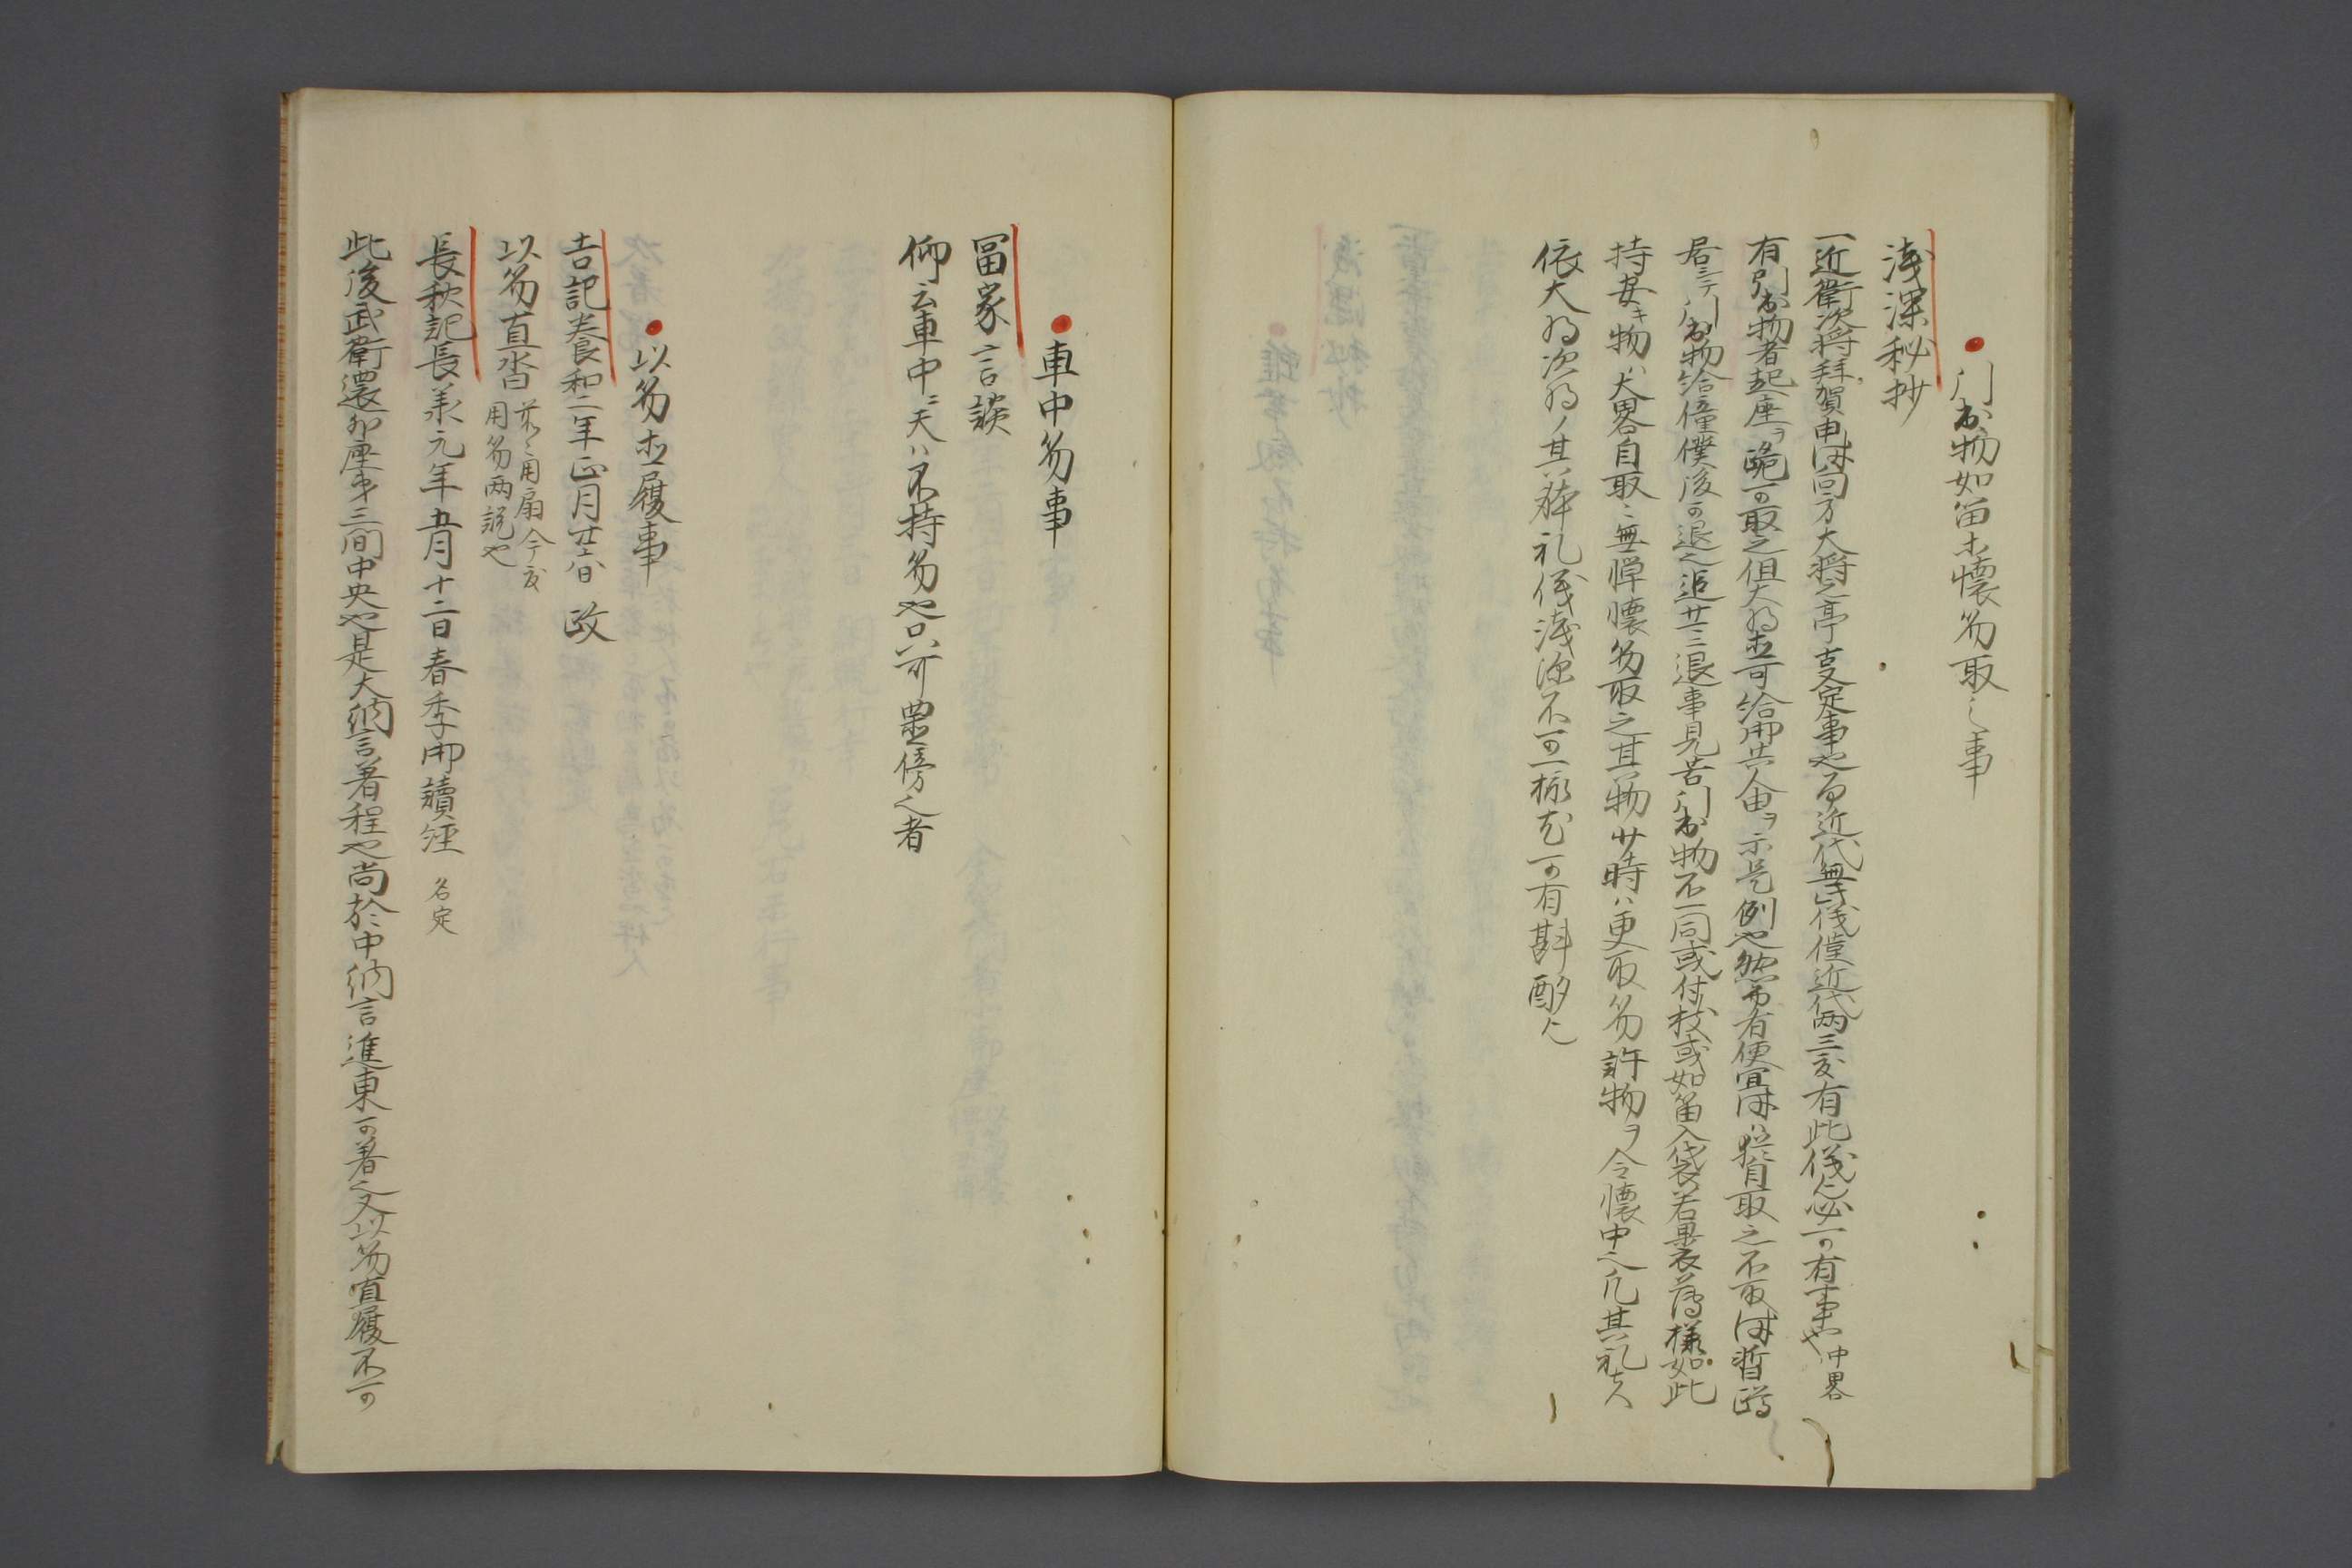 引出物如笛求懐笏取之事
浅深秘抄
一近衛次将拝賀申時向方大将之亭古定事也而近代無其儀僅近代両三度有此儀必可有事也中略
有引出物者起座ヲ跪可取之但大将並可給聞共人由ヲ示是例也然而有便宜時ハ躬自取之不取時暫跪
居テ引出物給僮僕後可退之追廿三退事見苦引出物不一同或付枝或如笛入袋若裹衣薄様如此
持安キ物ハ大略自取ニ無憚懐笏取之其物廿時ハ更取笏許物ヲ令懐中之凡其礼夫
依大将次将ノ其躰礼儀浅深不可一揆尤可有斟酌也
車中笏事
冨家言談
仰云車中ニ天ハ不持笏也只可置傍之者
以笏直履事
吉記養和二年正月廿八日 政
以笏直沓 前々用扇今度
用笏両説也
長秋記長承元年五月十二日春季御読経 名定
此後武衛還却座第三間中央也是大納言著程也尚於中納言進東可著之又以笏直履不可